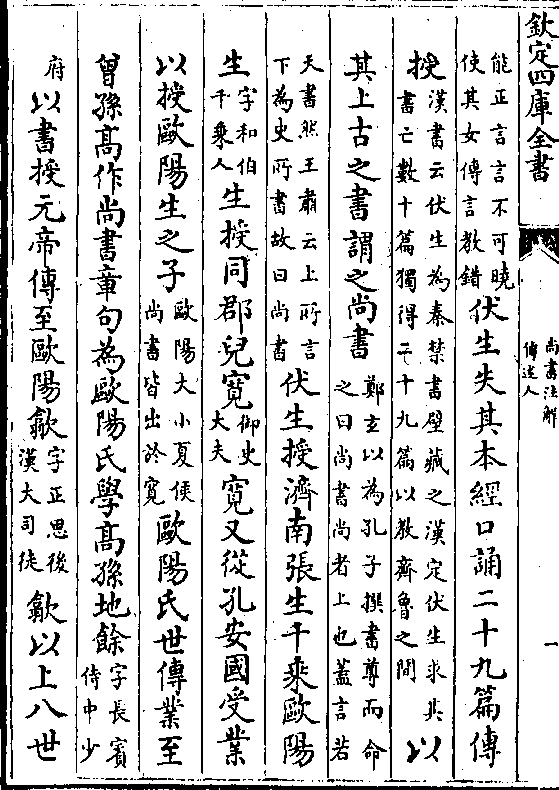 欽定四庫全書
尚書注解
傳述人
一
能正言言不可曉
使其女傳言教錯
伏生失其本經口誦二十九篇傳
授
漢書云伏生為秦禁書壁藏之漢定伏生求其
書亡數十篇獨得二十九篇以教齊魯之間
以
其上古之書謂之尚書
鄭玄以為孔子撰書尊而命
之曰尚書尚者上也蓋言若
天書然王肅云上所言
下為史所書故曰尚書
伏生授濟南張生千乘歐陽
生
字和伯
千乘人
生授同郡兒寬
御史
大夫
寬又從孔安國受業
以授歐陽生之子
歐陽大小夏侯
尚書皆出於寛
歐陽氏世傳業至
曾孫高作尚書章句為歐陽氏學高孫地餘
字長賓
侍中少
府
以書授元帝傳至歐陽歙
字正思後
漢大司徒
歙以上八世